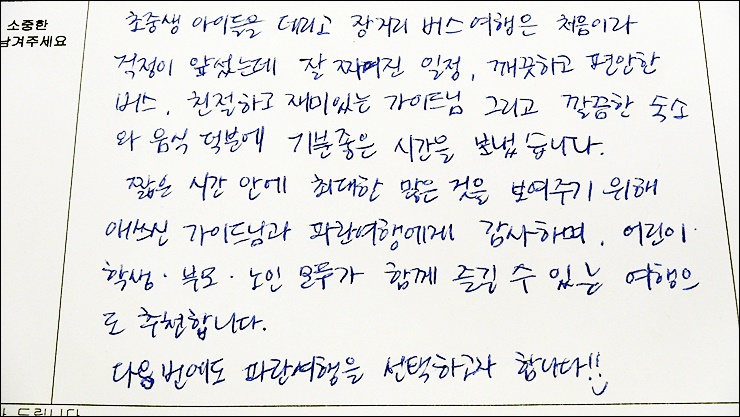 소중한
남겨주세요
초중생 아이들을 데리고 장거리 버스여행은 처음이라
걱정이 앞섰는데 잘 짜여진 일정, 깨끗하고 편안한
버스, 친절하고 재미있는 가이드님 그리고 깔끔한 숙소
와 음식 덕분에 기분좋은 시간을 보냈습니다.
짧은 시간 안에 최대한 많은 것을 보여주기 위해
애쓰신 가이드님과 파란여행에게 감사하며, 어린이·
학생·부모·노인 모두가 함께 즐길 수 있는 여행으
로 추천합니다.
다음번에도 파란여행을 선택하고자 합니다!!
드립니다